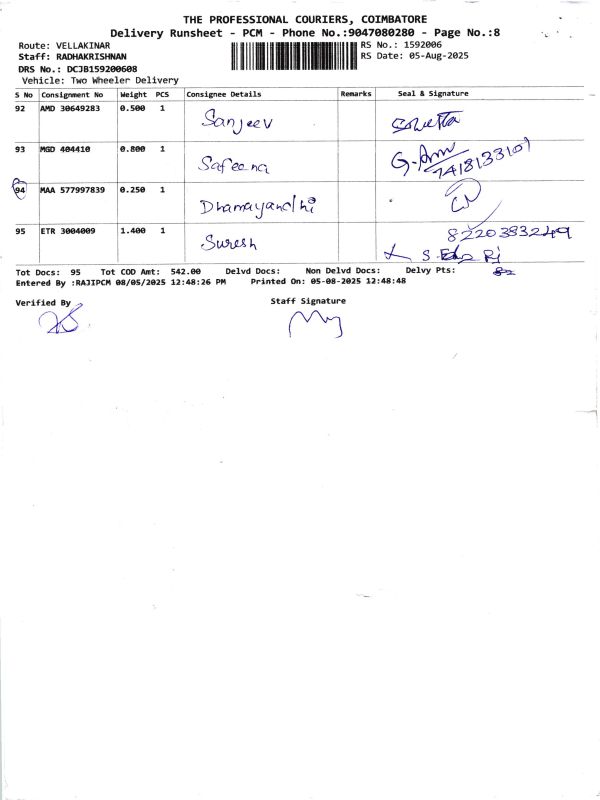 THE PROFESSIONAL COURIERS, COIMBATORE
Delivery Runsheet - PCM - Phone No.:9047080280 - Page No.:8
Route: VELLAKINAR RS No.: 1592006
Staff: RADHAKRISHNAN RS Date: 05-Aug-2025
DRS No.: DCJB159200608
Vehicle: Two Wheeler Delivery
S No Consignment No Weight PCS Consignee Details Remarks Seal & Signature
92 AMD 30649283 0.500 1 Sanjeev
93 MGD 404410 0.800 1 Safeena 7418133107
94 MAA 577997839 0.250 1 Dhamayandhi
95 ETR 3004009 1.400 1 Suresh 8220383249
Tot Docs: 95 Tot COD Amt: 542.00 Delvd Docs: Non Delvd Docs: Delvy Pts: 82
Entered By :RAJIPCM 08/05/2025 12:48:26 PM Printed On: 05-08-2025 12:48:48
Verified By Staff Signature